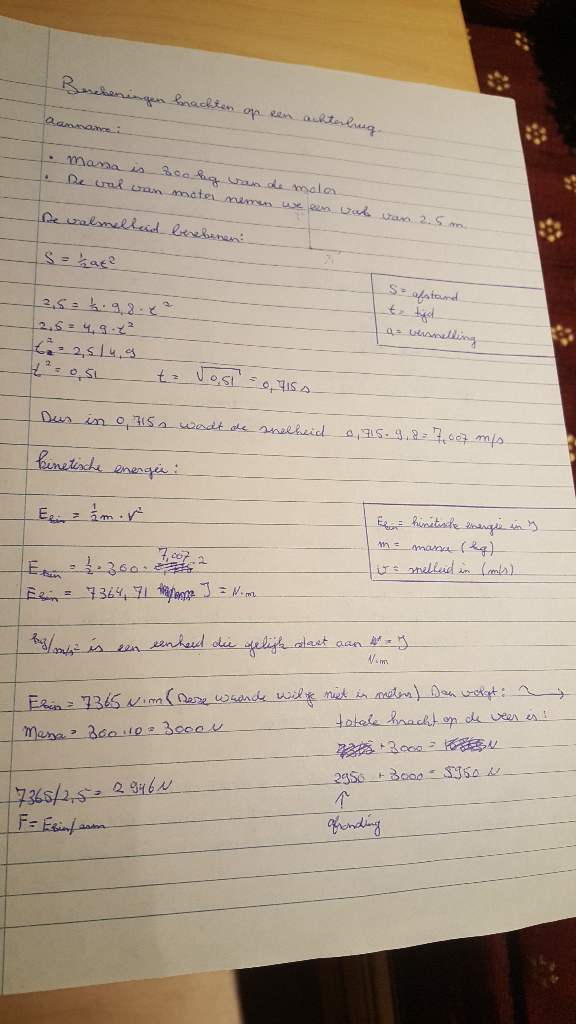 Berekeningen krachten op een achterbrug.
aanname:
• Massa is 300 kg van de motor
• De val van motor nemen we een val van 2.5 m.
De valsnelheid berekenen:
S = ½at²
S = afstand
t = tijd
a = versnelling
2,5 = ½ · 9,8 · t²
2,5 = 4,9 · t²
t² = 2,5/4,9
t² = 0,51 t = √0,51 = 0,715 s
Dus in 0,715 s wordt de snelheid 0,715 · 9,8 = 7,007 m/s
kinetische energie:
Ekin = ½ m · v²
Ekin = kinetische energie in J
m = massa (kg)
v = snelheid in (m/s)
Ekin = ½ · 300 · 7,007²
Ekin = 7364,71 J = N·m
kg/m/s² is een eenheid die gelijk staat aan = J
N·m
Ekin = 7365 N·m (Deze waarde wil je niet in meters) Dan volgt: →
Massa = 300 · 10 = 3000 N
totale kracht op de veer is:
+ 3000 = N
7365/2,5 = 2946 N
2950 + 3000 = 5950 N
↑
F = Ekin/arm
afronding